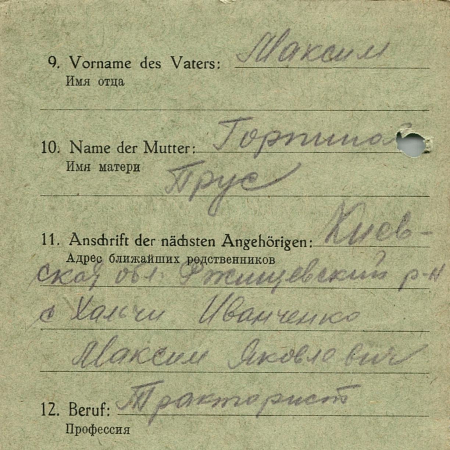 9. Vorname des Vaters: Максим
Имя отца
10. Name der Mutter: Горпина
Имя матери Прус
11. Anschrift der nächsten Angehörigen: Киев-
Адрес ближайших родственников
ская обл. Ржищевский р-н
с Хальчи Иванченко
Максим Яковлевич
12. Beruf: Тракторист
Профессия